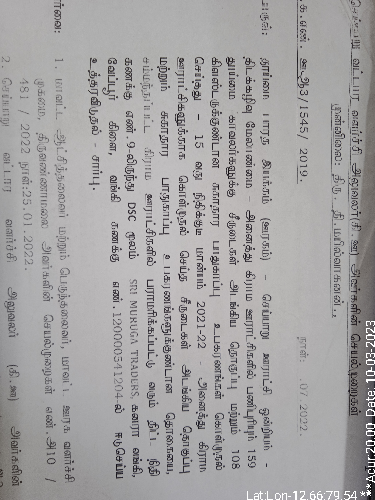 செய்யாறு வட்டார வளர்ச்சி அலுவலர்(கி.ஊ) அவர்களின் செயல்முறைகள்
முன்னிலை: திரு. தி. மயில்வாகனன்..
ந.க.எண். ஊ.ஆ3/1545/ 2019. நாள்: .07.2022.
பொருள்: தூய்மை பாரத இயக்கம் (ஊரகம்) - செய்யாறு ஊராட்சி ஒன்றியம் -
திடக்கழிவு மேலாண்மை - அனைத்து கிராம ஊராட்சிகளில் பணிபுரியும் 159
தூய்மை காவலர்களுக்கு சீருடைகள் அடங்கிய தொகுப்பு மற்றும் 108
கிளஸ்டருக்குண்டான சுகாதார பாதுகாப்பு உபகரணங்கள் கொள்முதல்
செய்தது - 15 வது நிதிக்குழு மான்யம் 2021-22 அனைத்து கிராம
ஊராட்சிகளுக்காக கொள்முதல் செய்த சீருடைகள் அடங்கிய தொகுப்பு
மற்றும் சுகாதார பாதுகாப்பு உபகரணங்களுக்குண்டான தொகையை,
சம்மந்தப்பட்ட கிராம ஊராட்சிகளில் பராமரிக்கப்பட்டு வரும் நிதி
கணக்கு எண்.9-லிருந்து DSC மூலம் SRI MURUGA TRADERS, கனரா வங்கி,
வேப்பூர் கிளை, வங்கி கணக்கு எண்.120000341204-ல் ஈடுசெய்ய
உத்தரவிடுதல் - சார்பு.
பார்வை: 1. மாவட்ட ஆட்சித்தலைவர் மற்றும் பெருந்தலைவர், மாவட்ட ஊரக வளர்ச்சி
முகமை, திருவண்ணாமலை அவர்களின் செயல்முறைகள் எண்.அ10 /
481 / 2022 நாள்:25.01.2022.
2. செய்யாறு வட்டார வளர்ச்சி அலுவலர் (கி.ஊ) அவர்களின்
Lat:Lon-12.66:79.54
***Acu:20.00 Date,10-03-2023